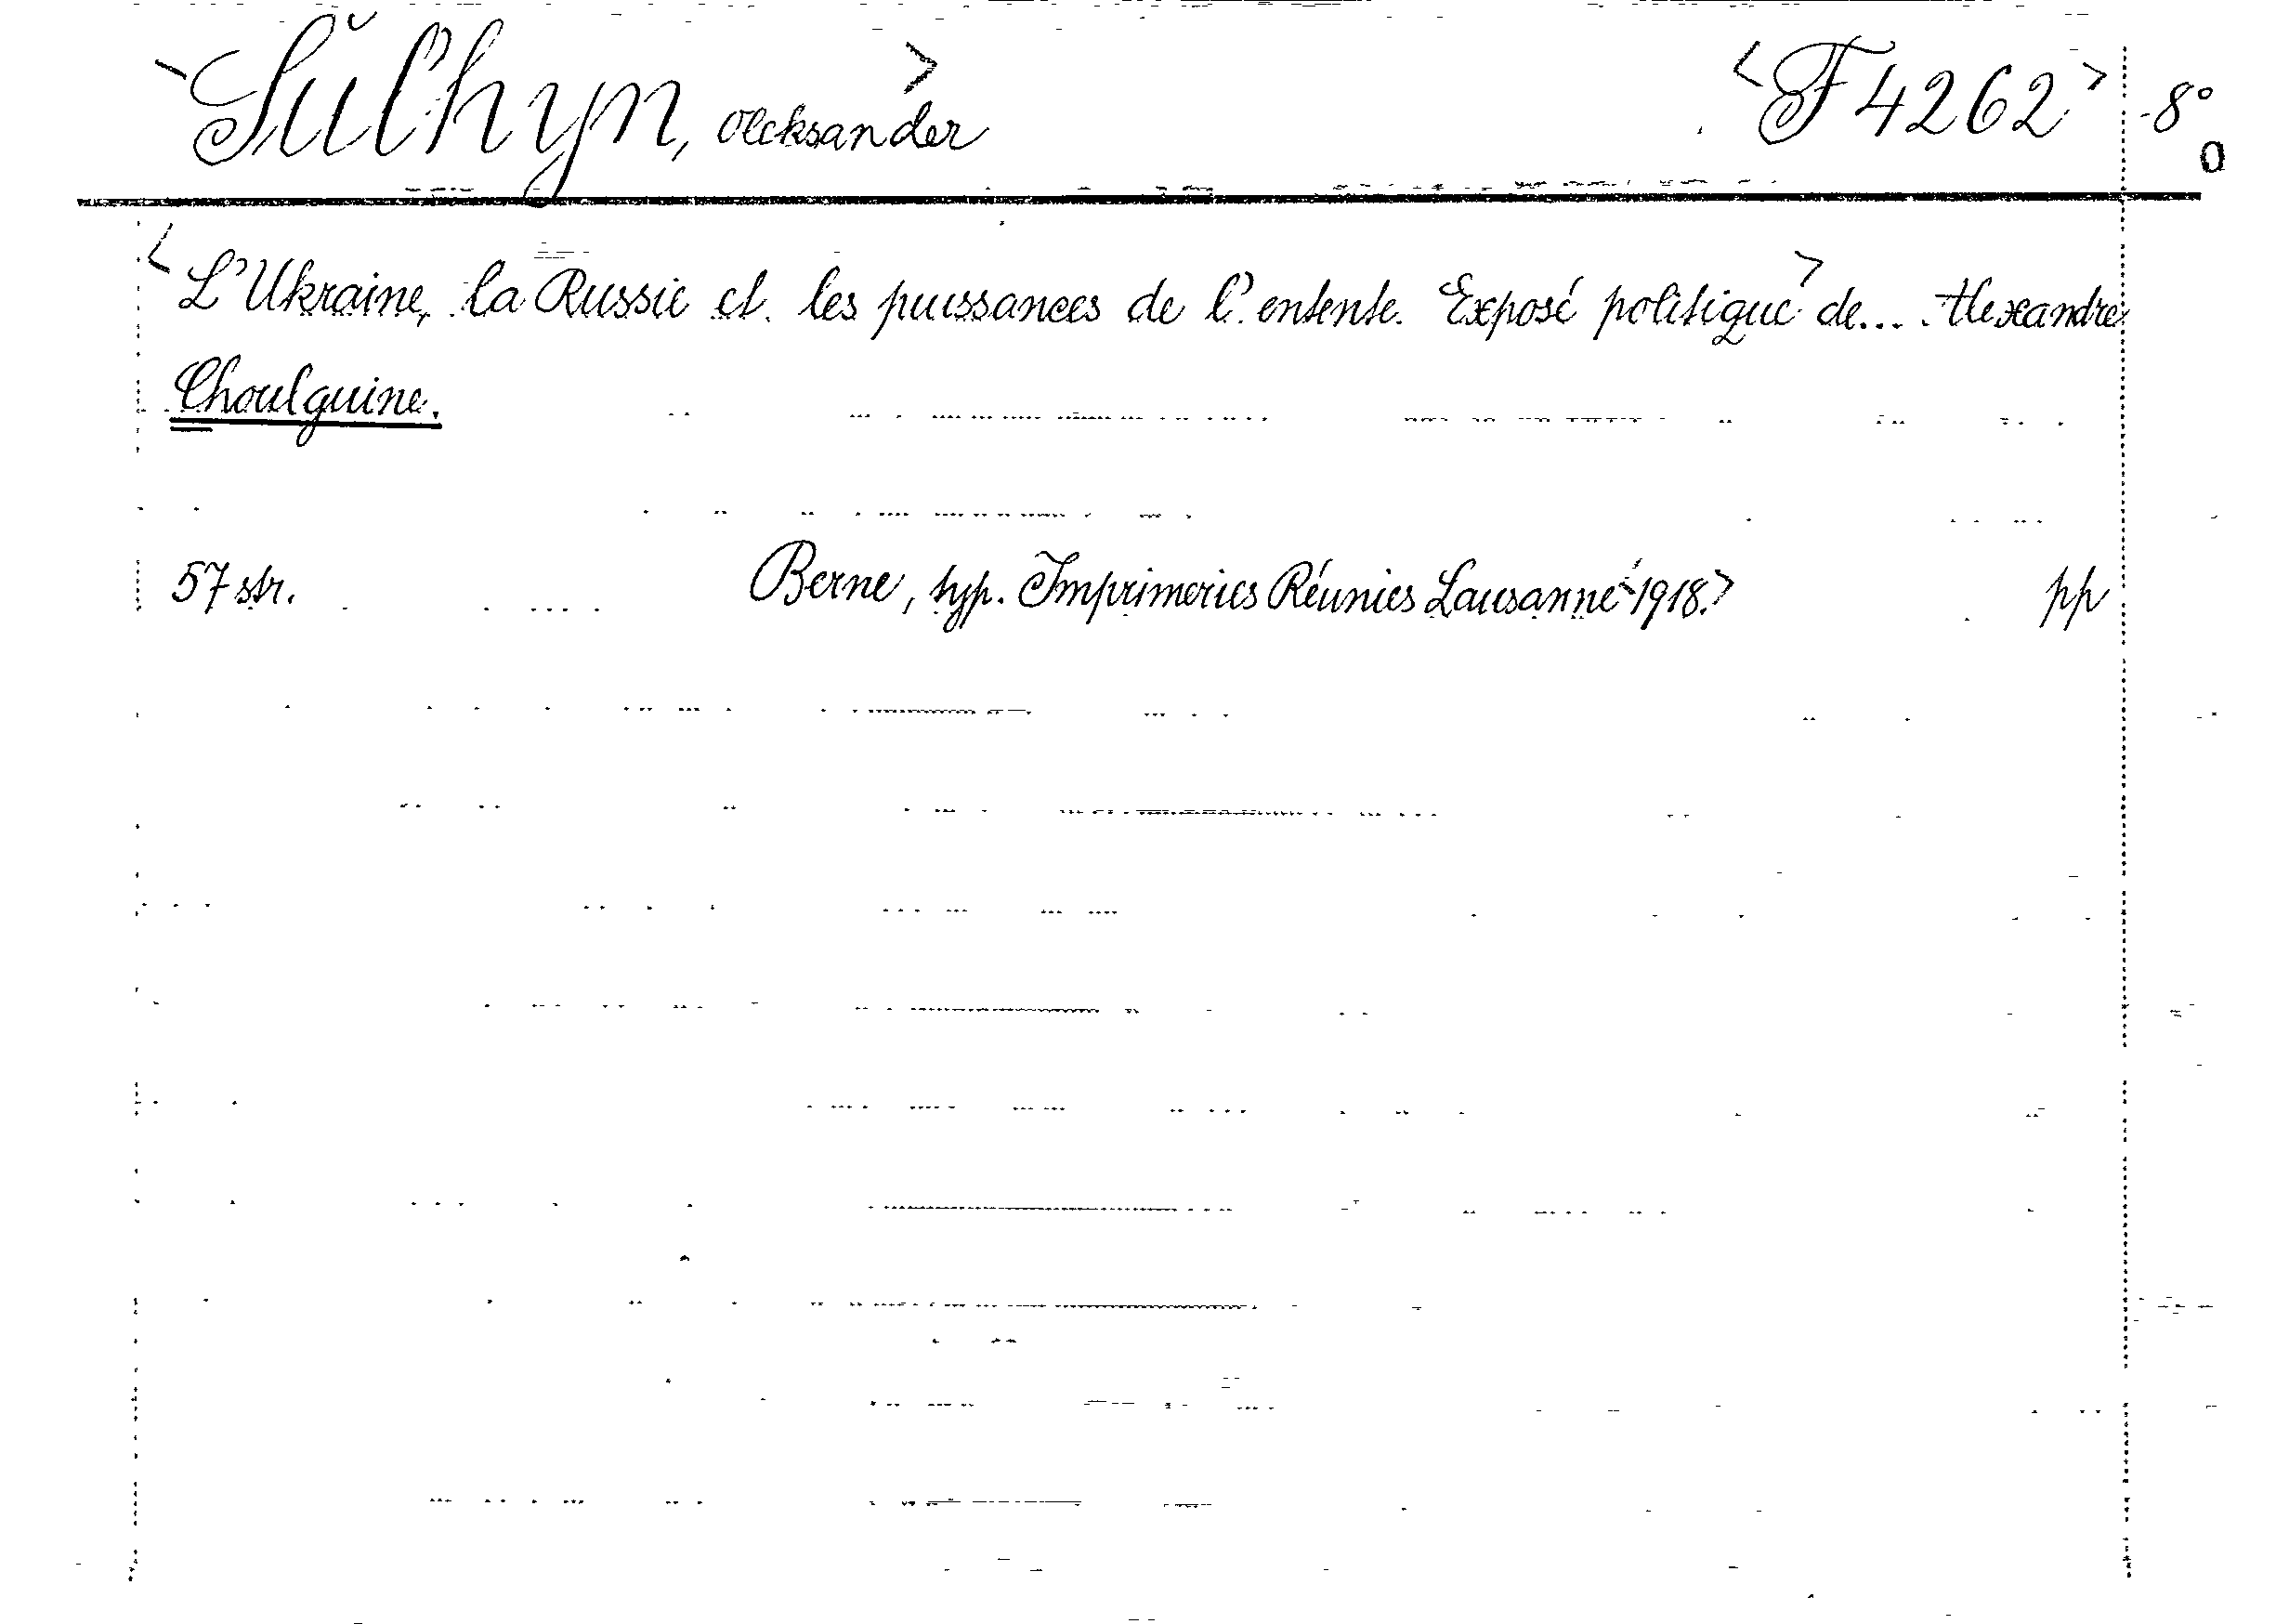 <Šulhyn, Oleksander> <F 4262> -8°
0
<L'Ukraine, la Russie et les puissances de l'entente. Exposé politique> de... Alexandre
Choulguine.
57 str. Berne, typ. Imprimeries Réunies Lausanne <1918.> pp